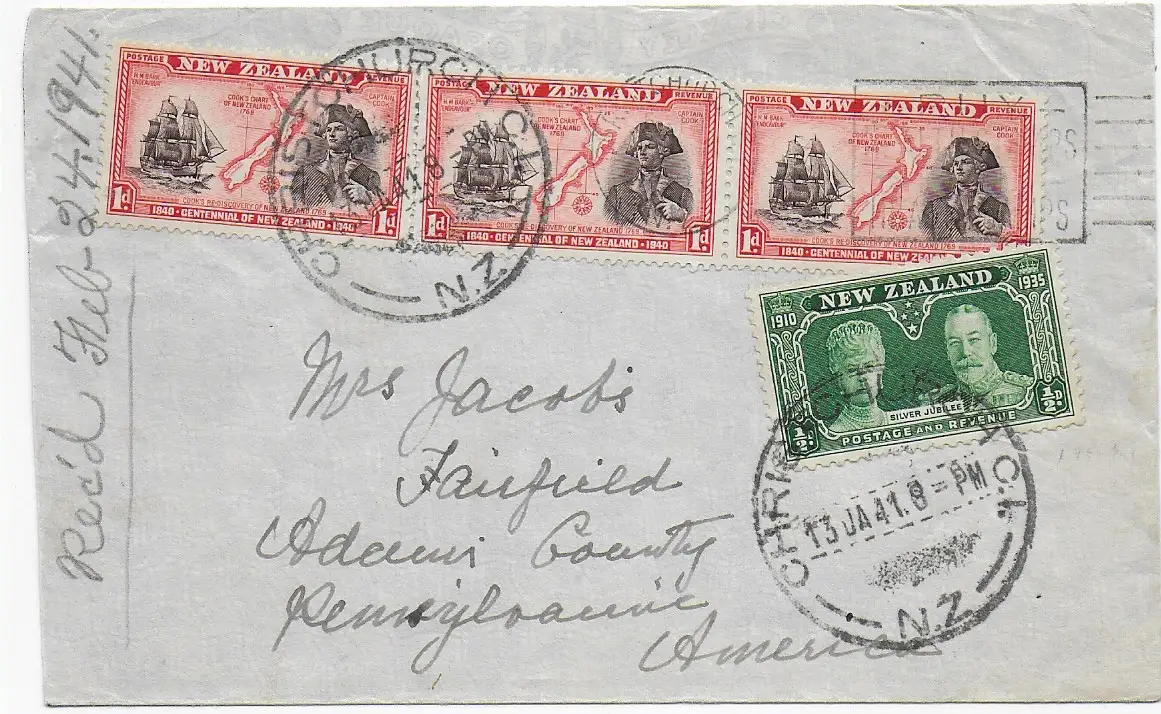 Rec'd Feb-24-1941.
POSTAGE NEW ZEALAND REVENUE
H.M. BARK "ENDEAVOUR"
COOK'S CHART OF NEW ZEALAND 1769
CAPTAIN COOK
COOK'S RE-DISCOVERY OF NEW ZEALAND 1769
1d 1840 · CENTENNIAL OF NEW ZEALAND · 1940 1d
POSTAGE NEW ZEALAND REVENUE
H.M. BARK "ENDEAVOUR"
COOK'S CHART OF NEW ZEALAND 1769
CAPTAIN COOK
COOK'S RE-DISCOVERY OF NEW ZEALAND 1769
1d 1840 · CENTENNIAL OF NEW ZEALAND · 1940 1d
POSTAGE NEW ZEALAND REVENUE
H.M. BARK "ENDEAVOUR"
COOK'S CHART OF NEW ZEALAND 1769
CAPTAIN COOK
COOK'S RE-DISCOVERY OF NEW ZEALAND 1769
1d 1840 · CENTENNIAL OF NEW
CHRISTCHURCH
N.Z.
1910 NEW ZEALAND 1935
SILVER JUBILEE
½D POSTAGE AND REVENUE ½D
CHRISTCHURCH
13 JA 41. 8 - PM
N.Z.
Mrs Jacobs
Fairfield
Adams County
Pennsylvania
America